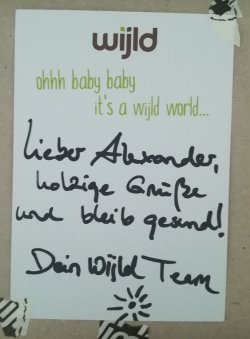 wijld
ohhh baby baby
it's a wijld world...
Lieber Alexander,
holzige Grüße
und bleib gesund!
Dein Wijld Team